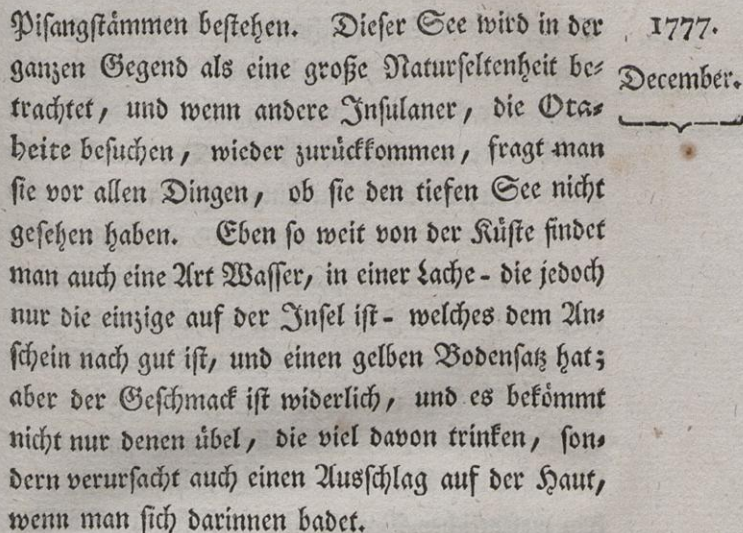 Pisangstämmen bestehen. Dieser See wird in der
ganzen Gegend als eine große Naturseltenheit be-
trachtet, und wenn andere Insulaner, die Ota-
heite besuchen, wieder zurückkommen, fragt man
sie vor allen Dingen, ob sie den tiefen See nicht
gesehen haben. Eben so weit von der Küste findet
man auch eine Art Wasser, in einer Lache - die jedoch
nur die einzige auf der Insel ist - welches dem An-
schein nach gut ist, und einen gelben Bodensatz hat;
aber der Geschmack ist widerlich, und es bekömmt
nicht nur denen übel, die viel davon trinken, son-
dern verursacht auch einen Ausschlag auf der Haut,
wenn man sich darinnen badet.
1777.
December.